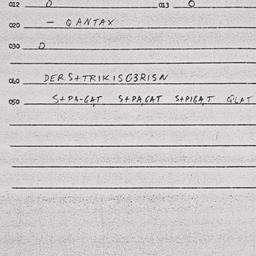 012 0 013 0
020 - QANTAX
030 0
040 DERS+TRIKISC3RISN
050 S+PA-GAT S+PAGAT S+PIGAT QLAT